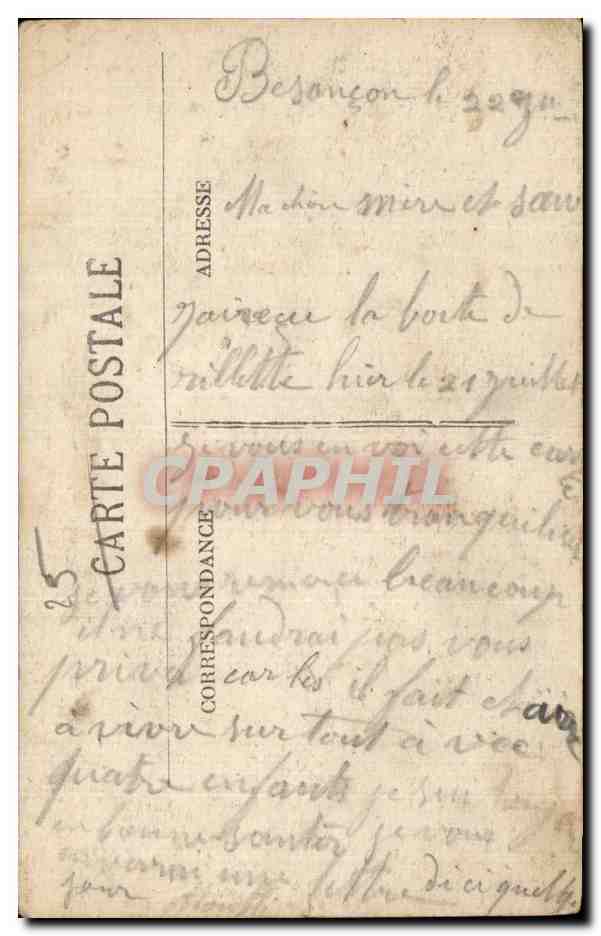 Besançon le 22
Ma chère mère et sœur
j'ai reçu la boite de
rillette hier le 21 juillet
je vous en voi cette car
te
pour vous tranquiliser
je vous remerci beaucoup
il ne faudrai pas vous
privé car les il fait chaire
à vivre sur tout à vec
quatre enfants je suis
en bonne santer je vous
une lettre dici quelque
jour
25
CARTE POSTALE
ADRESSE
CORRESPONDANCE
CPAPHIL